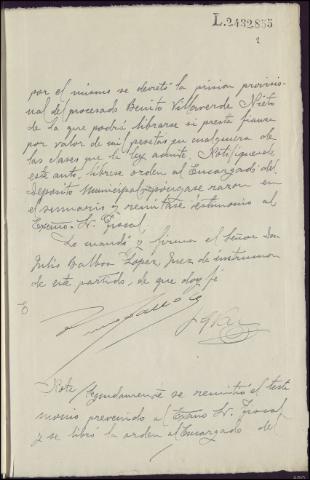 L.2432855
1
por el mismo se decretó la prision provisio-
nal del procesado Benito Villaverde Nieto
de la que podrá librarse si presta fianza
por valor de mil pesetas en cualquiera de
las clases que la ley admite. Notifiquese
este auto, librese orden al Encargado del
Deposito Municipal, pongase razon en
el sumario y remitase testimonio al
Excmo. Sr. Fiscal.
Lo mandó y firma el Señor Don
Julio Balboa Lopez, Juez de instruccion
de este partido, de que doy fé
Nota/ Seguidamente se remitió el testi
monio prevenido al Excmo Sr. Fiscal
y se libró la orden al Encargado del